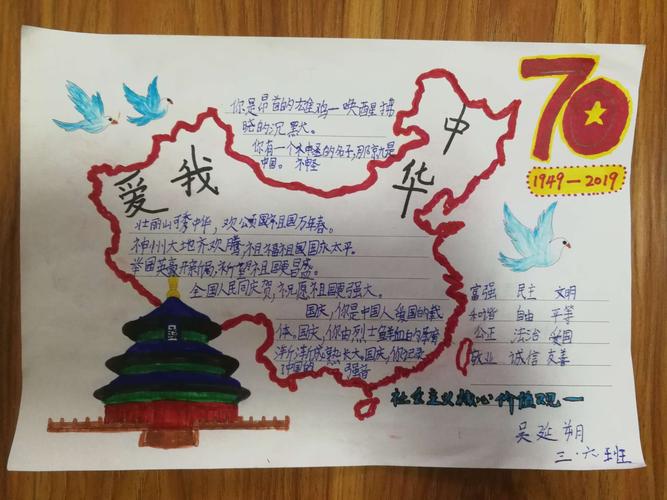 你是昂首的雄鸡一唤醒拂
晓的沉默。
你有一个不中的名子,那就是
中国。
爱我
中华
70
1949—2019
壮丽山河秀中华,欢公颂国祖国万年春。
神州大地齐欢腾,祖福祖国国庆太平。
举国英豪开新局,祈望祖国更昌盛。
全国人民同庆贺,祝愿祖国更强大。
国庆,你是中国人爱国的载
体。国庆,你由烈士鲜血白的孕育
渐渐成熟长大。国庆,你记录
了中国的 强首
富强 民主 文明
和谐 自由 平等
公正 法治 爱国
敬业 诚信 友善
社会主义核心价值观一
吴延朔
三·六班